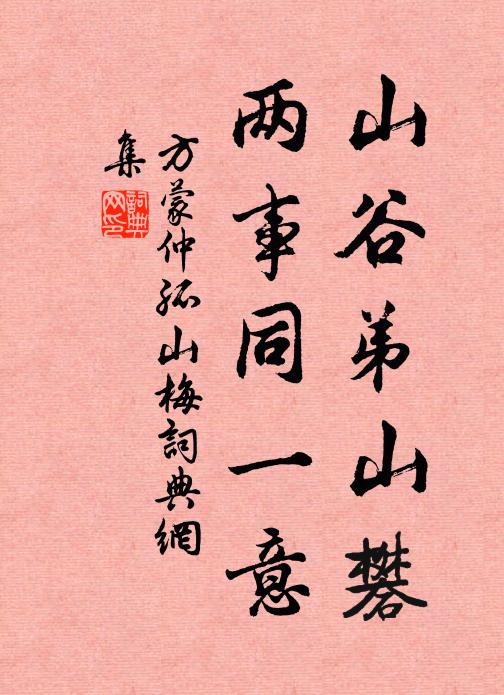 山谷弟山礬
两事同一意
方蒙仲孤山梅詞典網
集
詞典
网印